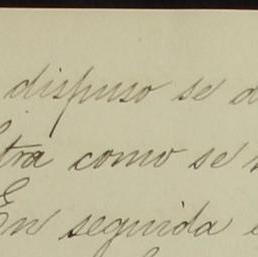 dispuso se
como se
En seguida